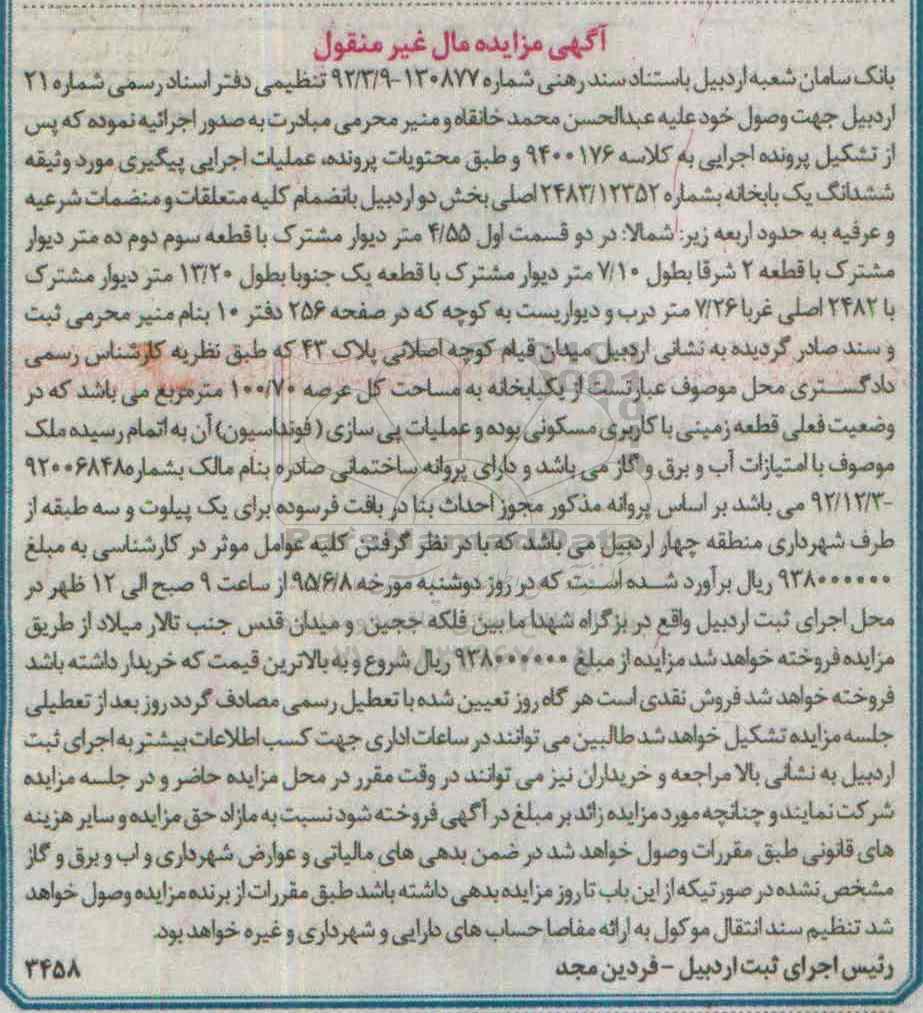 آگهی مزایده مال غیر منقول
بانک سامان شعبه اردبیل باستناد سند رهنی شماره ۱۳۰۸۷۷-۹۲/۳/۹ تنظیمی دفتر اسناد رسمی شماره ۲۱
اردبیل جهت وصول خود علیه عبدالحسن محمد خانقاه و منیر محرمی مبادرت به صدور اجرائیه نموده که پس
از تشکیل پرونده اجرایی به کلاسه ۹۴۰۰۱۷۶ و طبق محتویات پرونده، عملیات اجرایی پیگیری مورد وثیقه
ششدانگ یک بابخانه بشماره ۲۴۸۳/۱۲۳۵۲ اصلی بخش دو اردبیل بانضمام کلیه متعلقات و منضمات شرعیه
و عرفیه به حدود اربعه زیر: شمالا: در دو قسمت اول ۴/۵۵ متر دیوار مشترک با قطعه سوم دوم ده متر دیوار
مشترک با قطعه ۲ شرقا بطول ۷/۱۰ متر دیوار مشترک با قطعه یک جنوبا بطول ۱۳/۲۰ متر دیوار مشترک
با ۲۴۸۲ اصلی غربا ۷/۲۶ متر درب و دیواریست به کوچه که در صفحه ۲۵۶ دفتر ۱۰ بنام منیر محرمی ثبت
و سند صادر گردیده به نشانی اردبیل میدان قیام کوچه اصلانی پلاک ۴۳ که طبق نظریه کارشناس رسمی
دادگستری محل موصوف عبارتست از یکبابخانه به مساحت کل عرصه ۱۰۰/۷۰ مترمربع می باشد که در
وضعیت فعلی قطعه زمینی با کاربری مسکونی بوده و عملیات پی سازی (فونداسیون) آن به اتمام رسیده ملک
موصوف با امتیازات آب و برق و گاز می باشد و دارای پروانه ساختمانی صادره بنام مالک بشماره ۹۲۰۰۶۸۴۸
-۹۲/۱۲/۳ می باشد بر اساس پروانه مذکور مجوز احداث بنا در بافت فرسوده برای یک پیلوت و سه طبقه از
طرف شهرداری منطقه چهار اردبیل می باشد که با در نظر گرفتن کلیه عوامل موثر در کارشناسی به مبلغ
۹۳۸۰۰۰۰۰۰۰ ریال برآورد شده است که در روز دوشنبه مورخه ۹۵/۶/۸ از ساعت ۹ صبح الی ۱۲ ظهر در
محل اجرای ثبت اردبیل واقع در بزگراه شهدا ما بین فلکه ججین و میدان قدس جنب تالار میلاد از طریق
مزایده فروخته خواهد شد مزایده از مبلغ ۹۳۸۰۰۰۰۰۰۰ ریال شروع و به بالاترین قیمت که خریدار داشته باشد
فروخته خواهد شد فروش نقدی است هر گاه روز تعیین شده با تعطیل رسمی مصادف گردد روز بعد از تعطیلی
جلسه مزایده تشکیل خواهد شد طالبین می توانند در ساعات اداری جهت کسب اطلاعات بیشتر به اجرای ثبت
اردبیل به نشانی بالا مراجعه و خریداران نیز می توانند در وقت مقرر در محل مزایده حاضر و در جلسه مزایده
شرکت نمایند و چنانچه مورد مزایده زائد بر مبلغ در آگهی فروخته شود نسبت به مازاد حق مزایده و سایر هزینه
های قانونی طبق مقررات وصول خواهد شد در ضمن بدهی های مالیاتی و عوارض شهرداری و اب و برق و گاز
مشخص نشده در صورتیکه از این باب تا روز مزایده بدهی داشته باشد طبق مقررات از برنده مزایده وصول خواهد
شد تنظیم سند انتقال موکول به ارائه مفاصا حساب های دارایی و شهرداری و غیره خواهد بود.
رئیس اجرای ثبت اردبیل - فردین مجد
۳۴۵۸